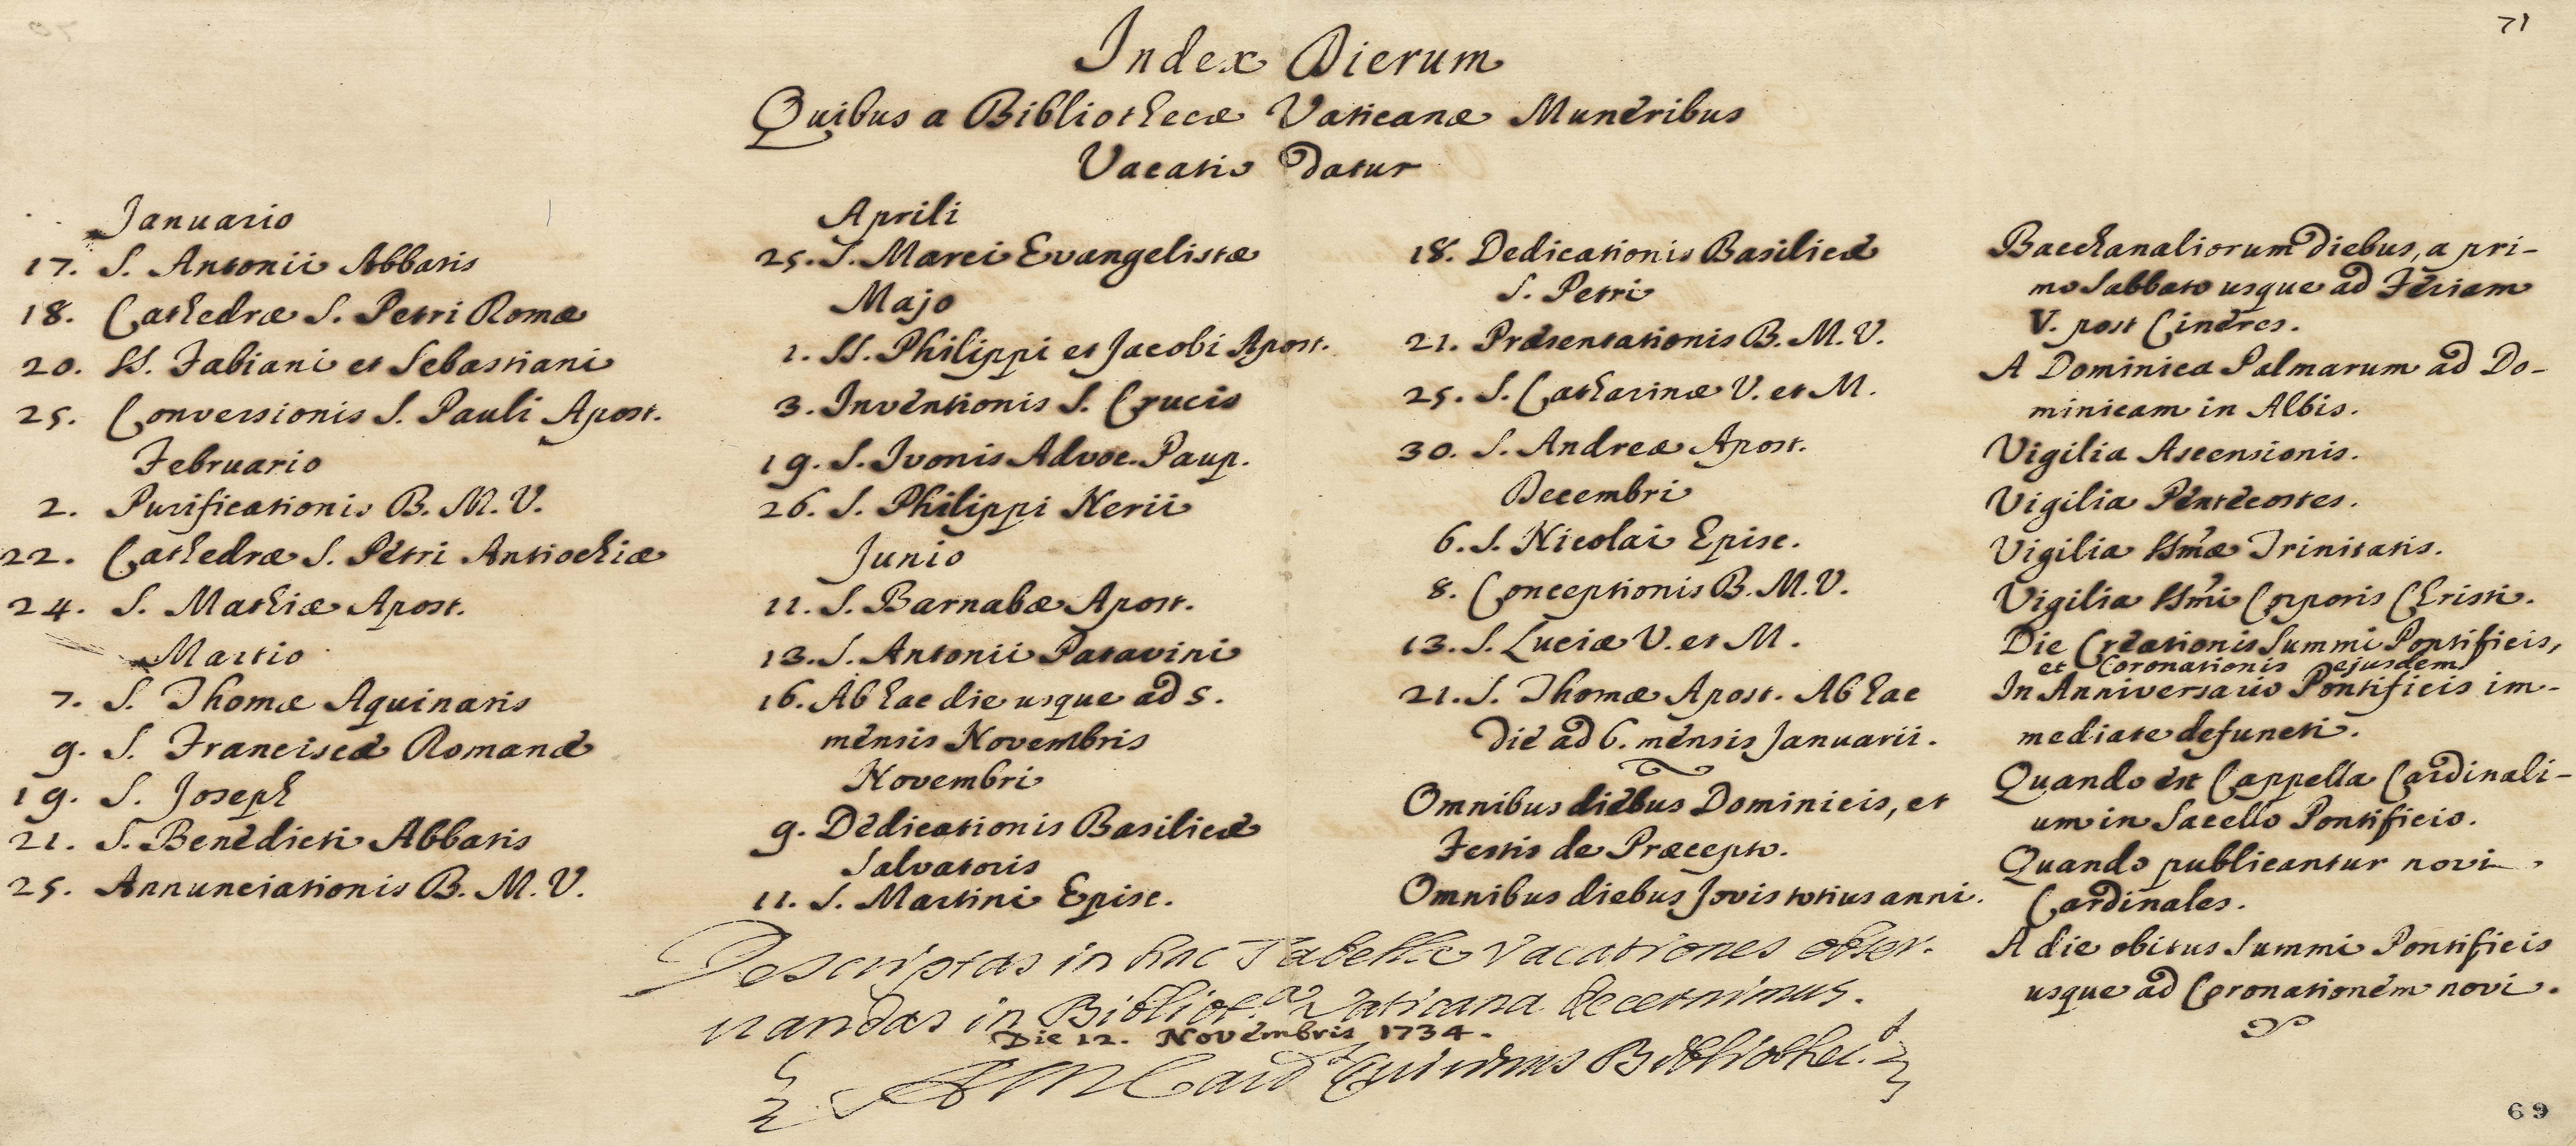 71
Index Dierum
Quibus a Bibliothecæ Vaticanæ Muneribus
Vacatio Datur
Januario
17. S. Antonii Abbatis
18. Cathedræ S. Petri Romæ
20. SS. Fabiani et Sebastiani
25. Conversionis S. Pauli Apost.
Februario
2. Purificationis B. M. V.
22. Cathedræ S. Petri Antiochiæ
24. S. Mathiæ Apost.
Martio
7. S. Thomæ Aquinatis
9. S. Franciscæ Romanæ
19. S. Joseph
21. S. Benedicti Abbatis
25. Annunciationis B. M. V.
Aprili
25. S. Marci Evangelistæ
Majo
1. SS. Philippi et Jacobi Apost.
3. Inventionis S. Crucis
19. S. Ivonis Advoc. Paup.
26. S. Philippi Nerii
Junio
11. S. Barnabæ Apost.
13. S. Antonii Patavini
16. Ab hac die usque ad 5.
mensis Novembris
Novembri
9. Dedicationis Basilicæ
Salvatoris
11. S. Martini Episc.
18. Dedicationis Basilicæ
S. Petri
21. Præsentationis B. M. V.
25. S. Catharinæ V. et M.
30. S. Andreæ Apost.
Decembri
6. S. Nicolai Episc.
8. Conceptionis B. M. V.
13. S. Luciæ V. et M.
21. S. Thomæ Apost. Ab hac
die ad 6. mensis Januarii.
Omnibus diebus Dominicis, et
Festis de Præcepto.
Omnibus diebus Jovis totius anni.
Bacchanaliorum diebus, a pri-
mo Sabbato usque ad Feriam
V. post Cineres.
A Dominica Palmarum ad Do-
minicam in Albis.
Vigilia Ascensionis.
Vigilia Pentecostes.
Vigilia SSmæ Trinitatis.
Vigilia SSmi Corporis Christi.
Die Creationis Summi Pontificis,
et Coronationis ejusdem
In Anniversario Pontificis im-
mediate defuncti.
Quando est Cappella Cardinali-
um in Sacello Pontificio.
Quando publicantur novi
Cardinales.
A die obitus Summi Pontificis
usque ad Coronationem novi.
Descriptas in hac Tabella Vacationes obser-
vandas in Bibliot.ca Vaticana decernimus.
Die 12. Novembris 1734.
A M Card Quirinus Bibliothec.
69